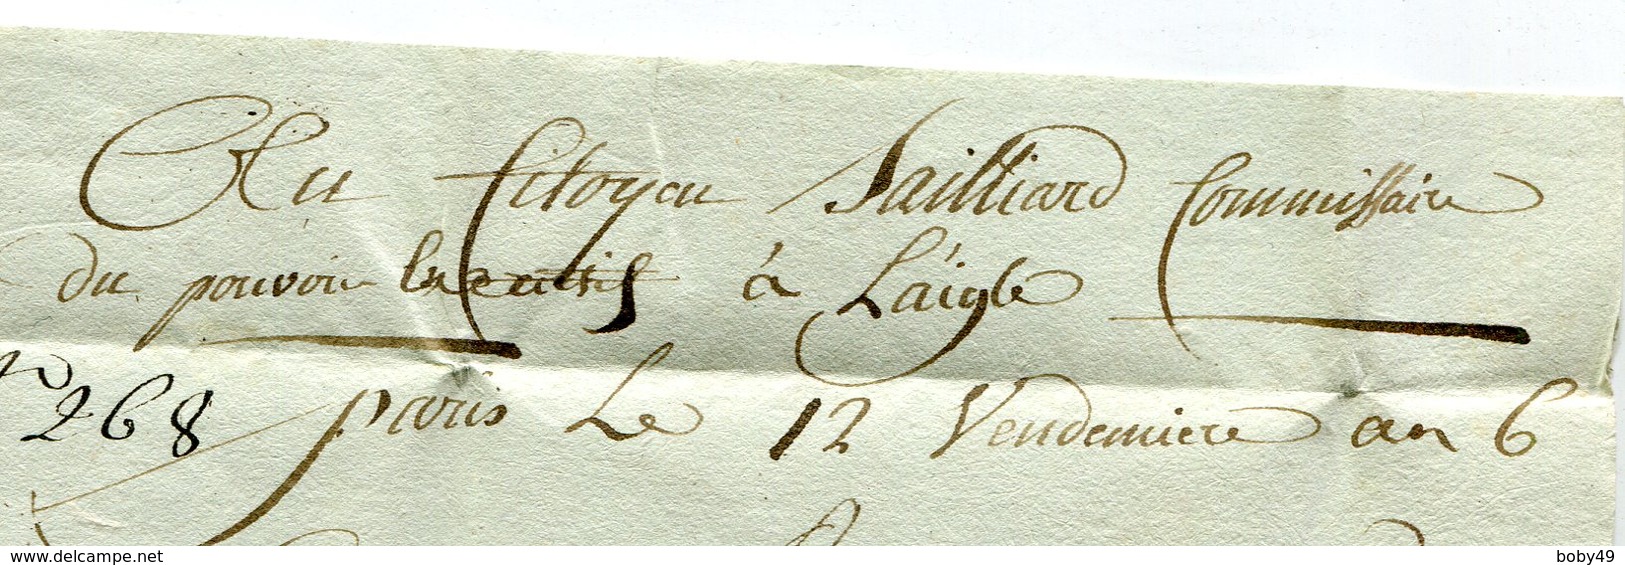 Au Citoyen Sailliard Commissaire
du pouvoir Executif à L'aigle
268 paris Le 12 Vendemiere an 6
www.delcampe.net
boby49